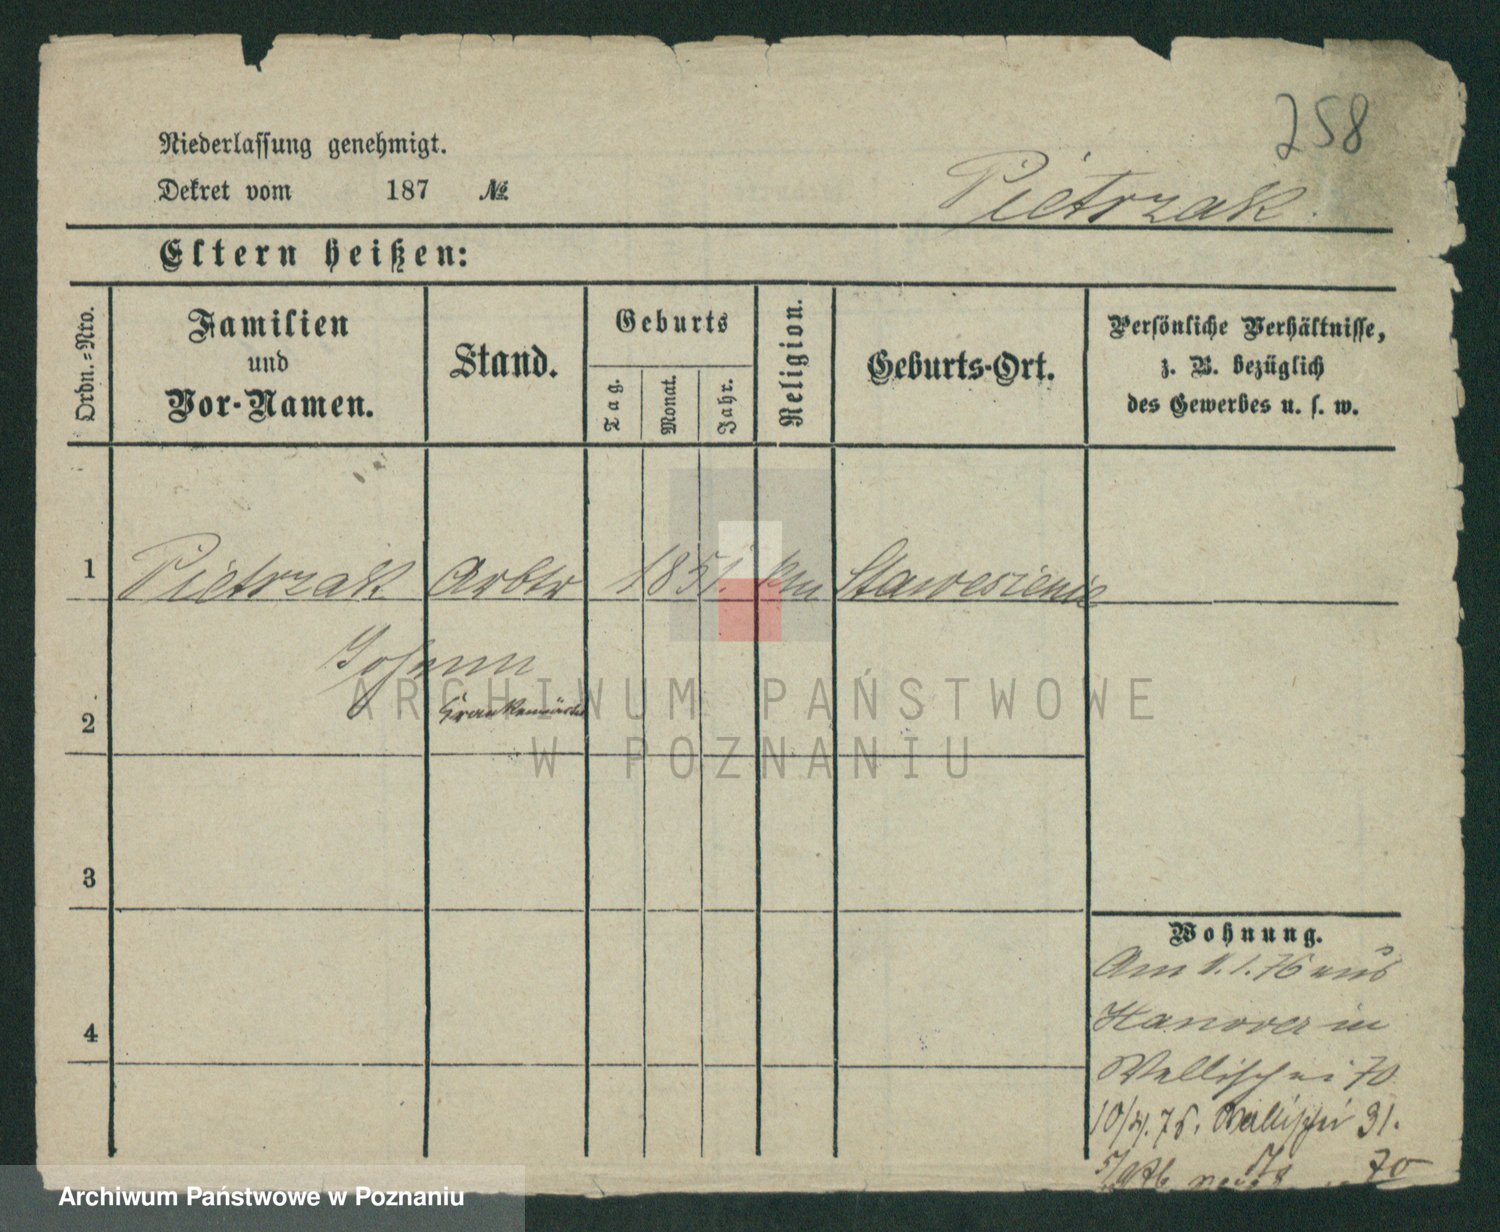 258
Niederlassung genehmigt.
Dekret vom 187 №
Pietrzak.
Eltern heißen:
Ordn.=Nro.
Familien
und
Vor-Namen.
Stand.
Geburts
Tag.
Monat.
Jahr.
Religion.
Geburts-Ort.
Persönliche Verhältnisse,
z. B. bezüglich
des Gewerbes u. s. w.
1 Pietrzak Arbtr 1851. km
Johann
2
3
4
Wohnung.
Am 1.1.76 aus
Hanover in
Wallischei 70
10/4. 76. Wallischei 31.
70
ARCHIWUM PAŃSTWOWE
W POZNANIU
Archiwum Państwowe w Poznaniu